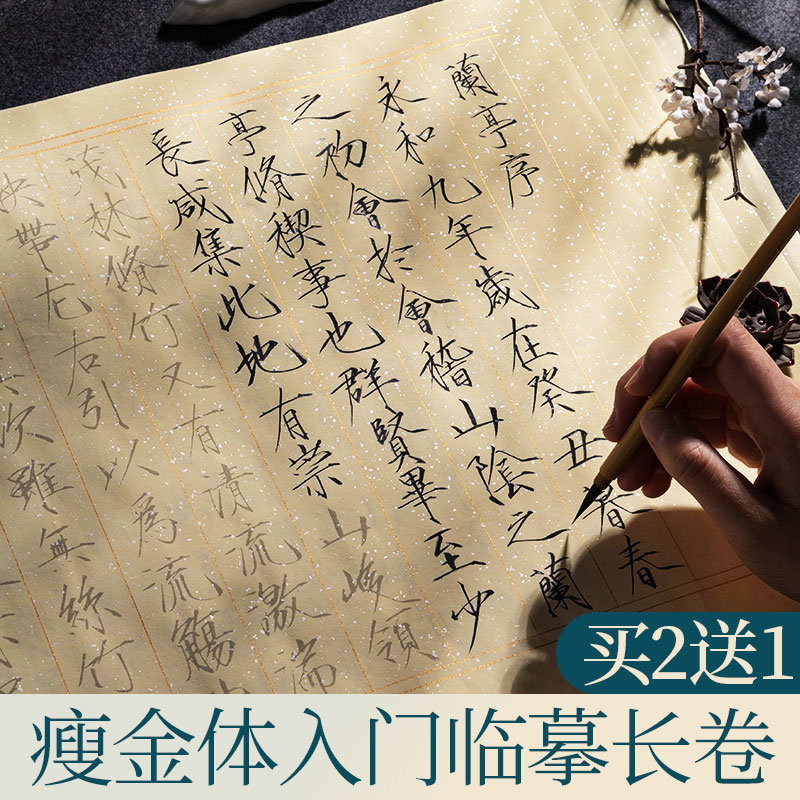 蘭亭序
永和九年歲在癸丑暮春
之初會於會稽山陰之蘭
亭脩稧事也群賢畢至少
長咸集此地有崇山峻領
茂林脩竹又有清流激湍
暎帶左右引以為流觴
次雖無絲竹
买2送1
瘦金体入门临摹长卷